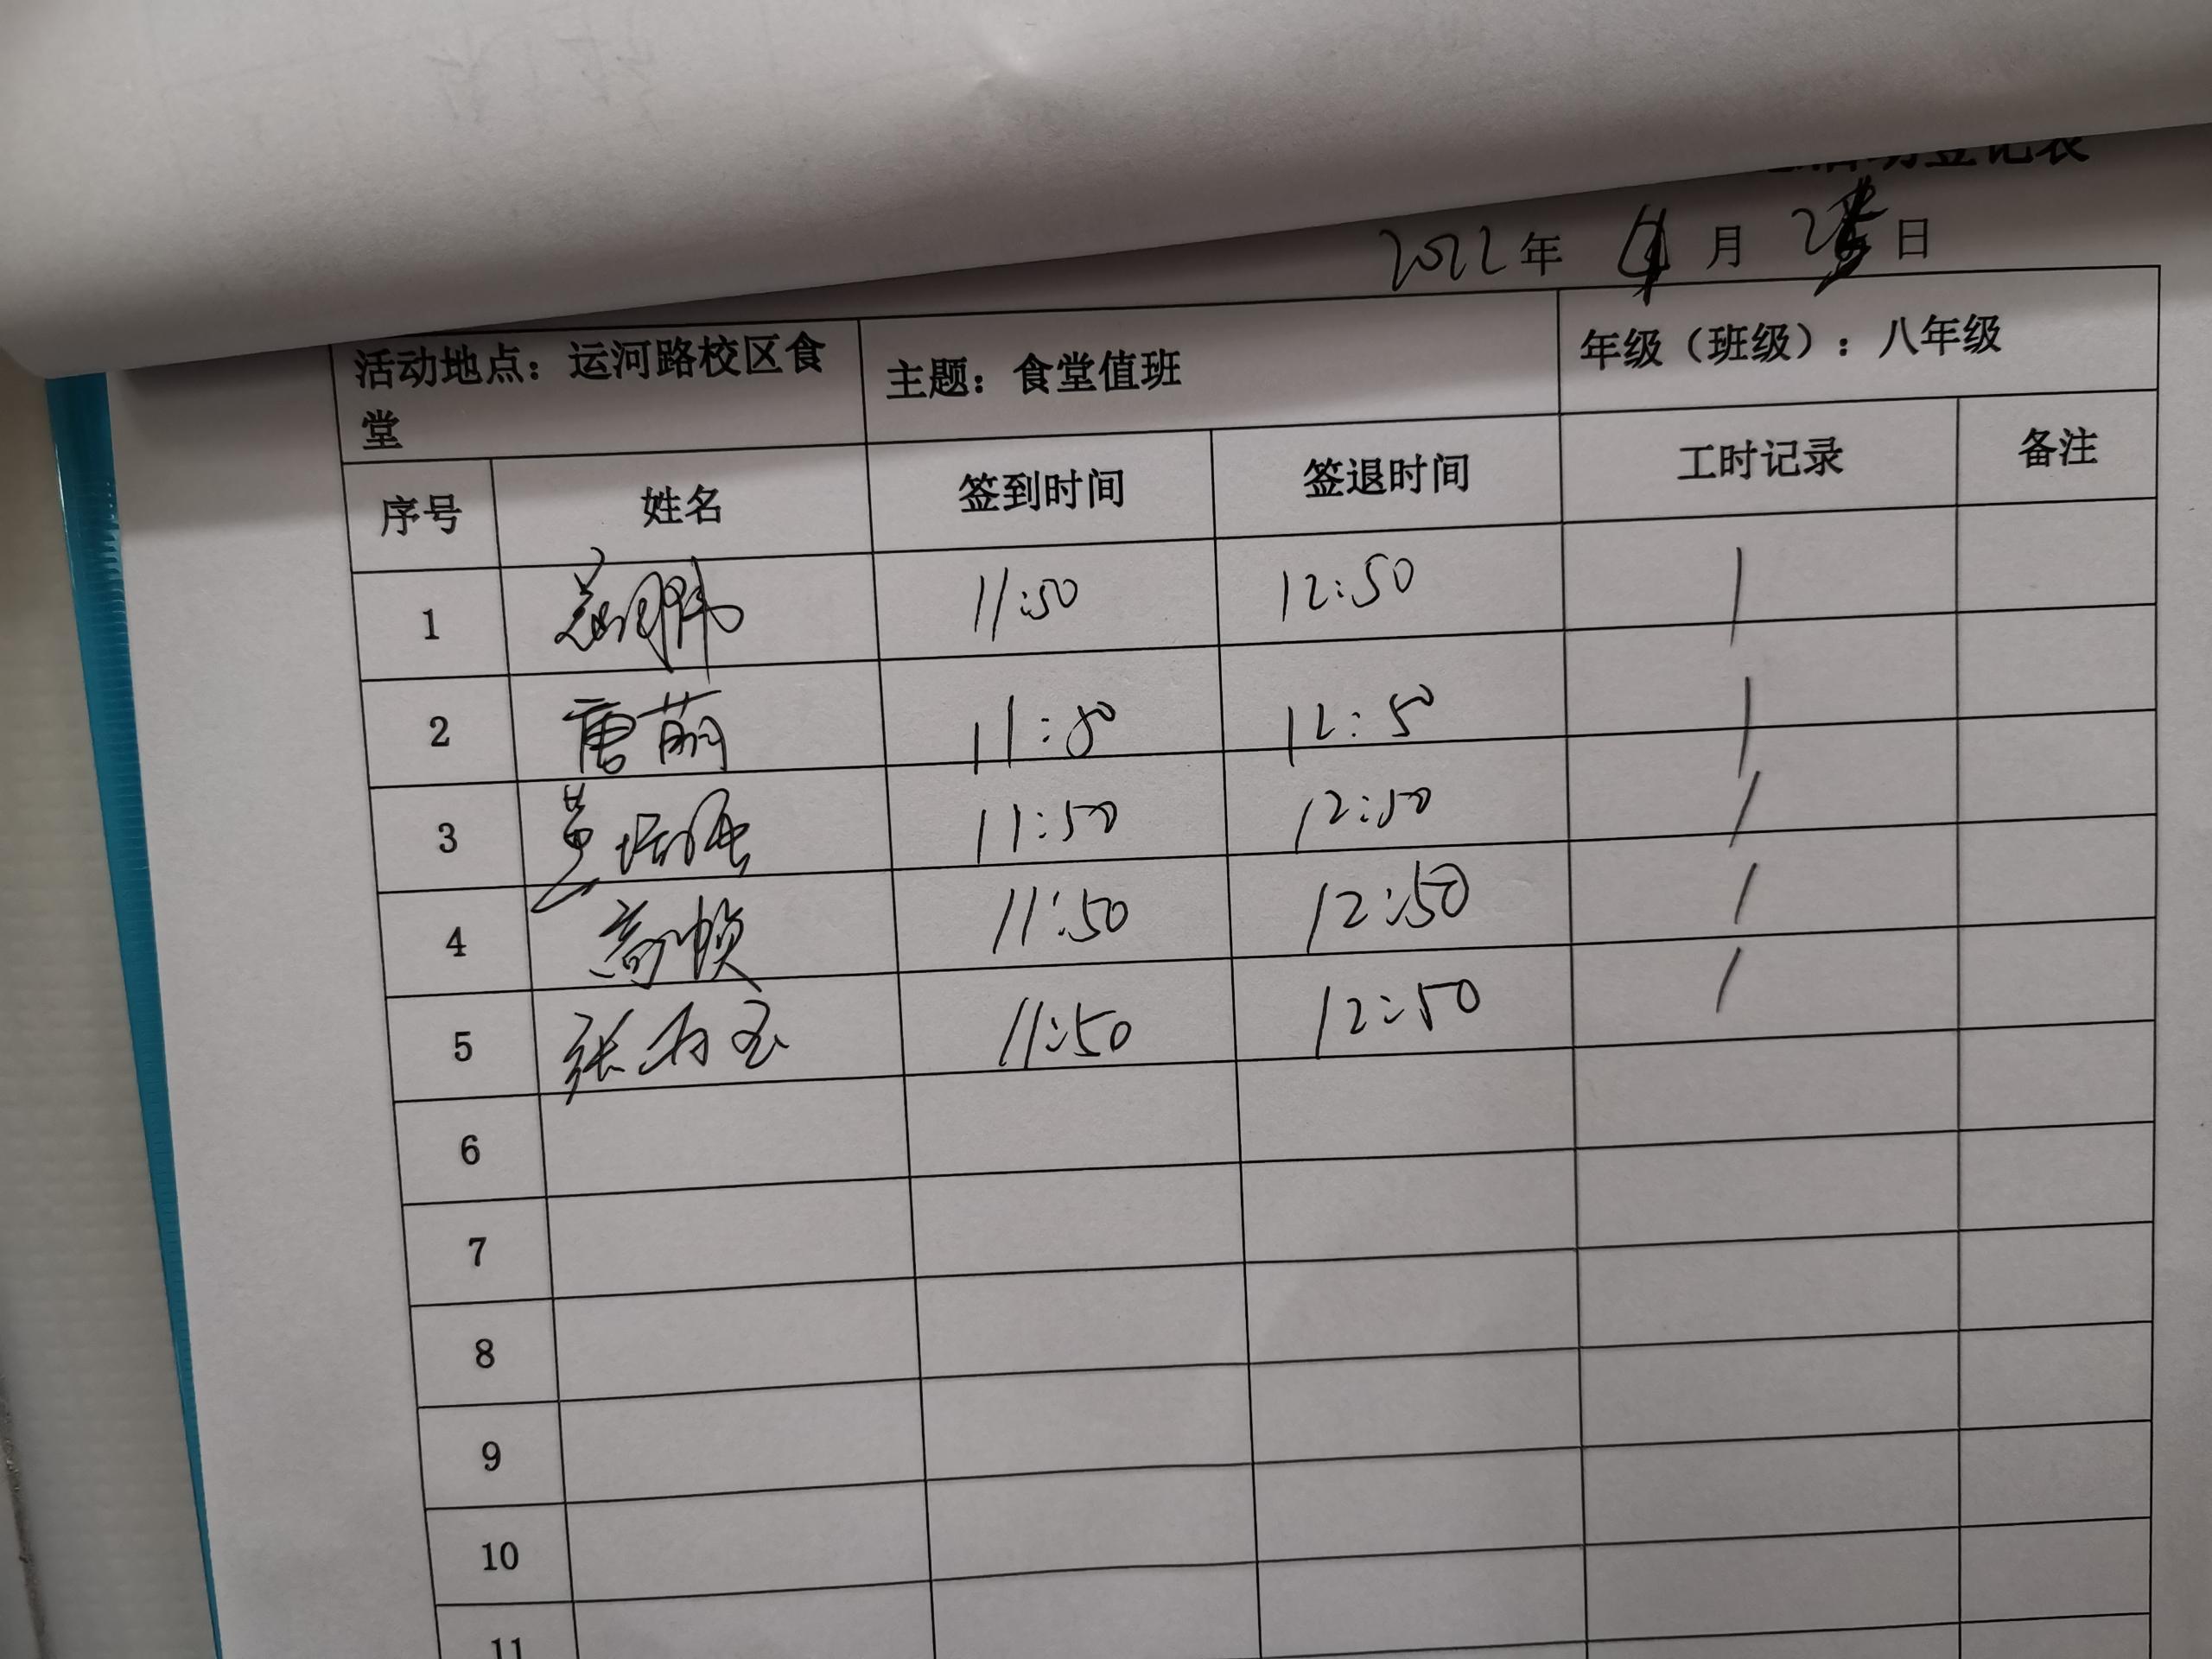 活动登记表
2022年 月 日
活动地点：运河路校区食堂 主题：食堂值班 年级（班级）：八年级
序号 姓名 签到时间 签退时间 工时记录 备注
1 11:50 12:50 1
2 唐萌 11:50 12:50 1
3 11:50 12:50 1
4 高帧 11:50 12:50 1
5 11:50 12:50 1
6
7
8
9
10
11